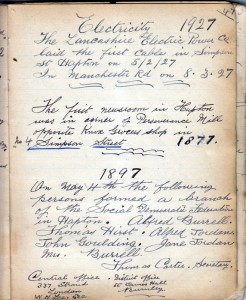 Electricity 1927
The Lancashire Electric Power Co
laid the first Cable in Simpson
St Hapton on 5/2/27
In Manchester Rd on 8.3.27
The first newsroom in Hapton
was in corner of Perseverance Mill
opposite Knox Grocers shop in
No 4 Simpson Street 1877.
1897
On May 4th the following
persons formed a branch
of the Social Democratic Federation
in Hapton. Albert Burrell.
Thomas Hirst. Alfred Jordan
John Goulding. Jane Jordan
Mrs. Burrell.
Thomas Carter, Secretary.
Central office District office
337 Strand St James Hall
London Burnley.